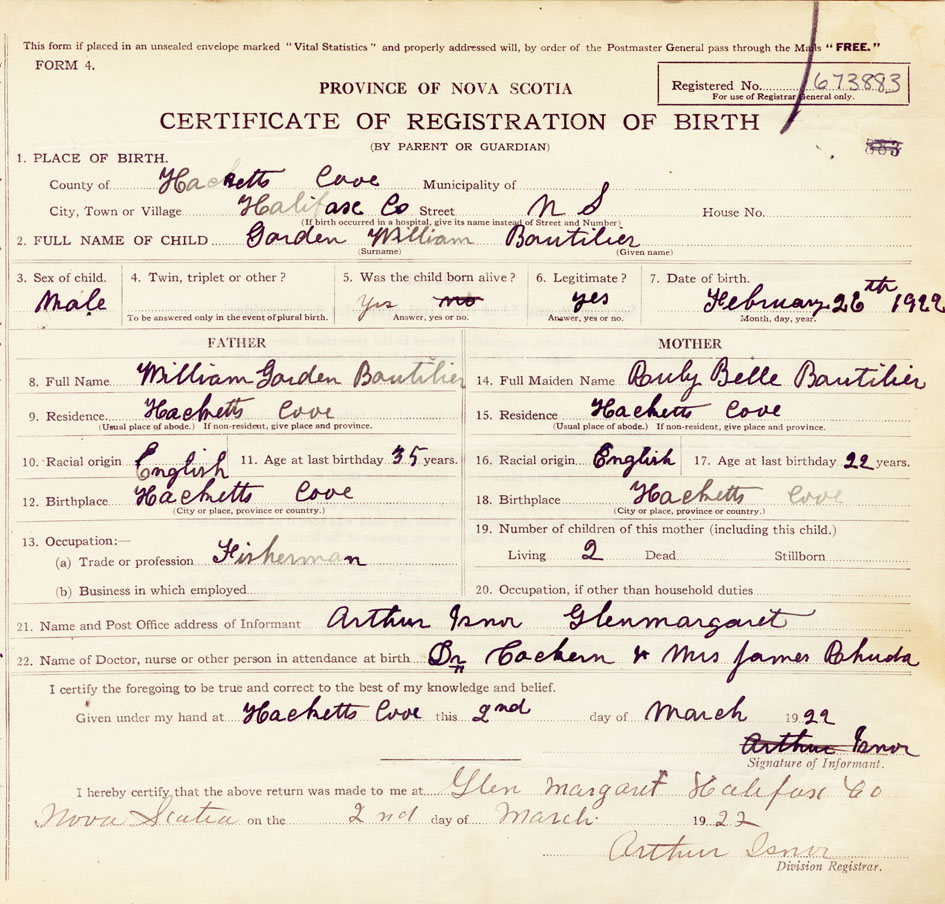 This form if placed in an unsealed envelope marked "Vital Statistics" and properly addressed will, by order of the Postmaster General pass through the Mails "FREE."
FORM 4.
PROVINCE OF NOVA SCOTIA
Registered No. 673883
For use of Registrar General only.
CERTIFICATE OF REGISTRATION OF BIRTH
(BY PARENT OR GUARDIAN)
1. PLACE OF BIRTH.
County of Hacketts Cove Municipality of
City, Town or Village Halifase Co Street N S House No.
(If birth occurred in a hospital, give its name instead of Street and Number)
2. FULL NAME OF CHILD Gorden William Boutilier
(Surname) (Given name)
3. Sex of child. 4. Twin, triplet or other? 5. Was the child born alive? 6. Legitimate? 7. Date of birth.
Male Yes no yes February 26th 1922
To be answered only in the event of plural birth. Answer, yes or no. Answer, yes or no. Month, day, year.
FATHER MOTHER
8. Full Name William Gorden Boutilier 14. Full Maiden Name Ruby Belle Boutilier
9. Residence Hacketts Cove 15. Residence Hacketts Cove
(Usual place of abode.) If non-resident, give place and province. (Usual place of abode.) If non-resident, give place and province.
10. Racial origin English 11. Age at last birthday 35 years. 16. Racial origin English 17. Age at last birthday 22 years.
12. Birthplace Hacketts Cove 18. Birthplace Hacketts Cove
(City or place, province or country.) (City or place, province or country.)
13. Occupation:— 19. Number of children of this mother (including this child.)
(a) Trade or profession Fisherman Living 2 Dead Stillborn
(b) Business in which employed 20. Occupation, if other than household duties
21. Name and Post Office address of Informant Arthur Isnor Glenmargaret
22. Name of Doctor, nurse or other person in attendance at birth Dr Cochern & Mrs James
I certify the foregoing to be true and correct to the best of my knowledge and belief.
Given under my hand at Hacketts Cove this 2nd day of March 1922
Arthur Isnor
Signature of Informant.
I hereby certify that the above return was made to me at Glen Margaret Halifax Co
Nova Scotia on the 2nd day of March 1922
Arthur Isnor
Division Registrar.